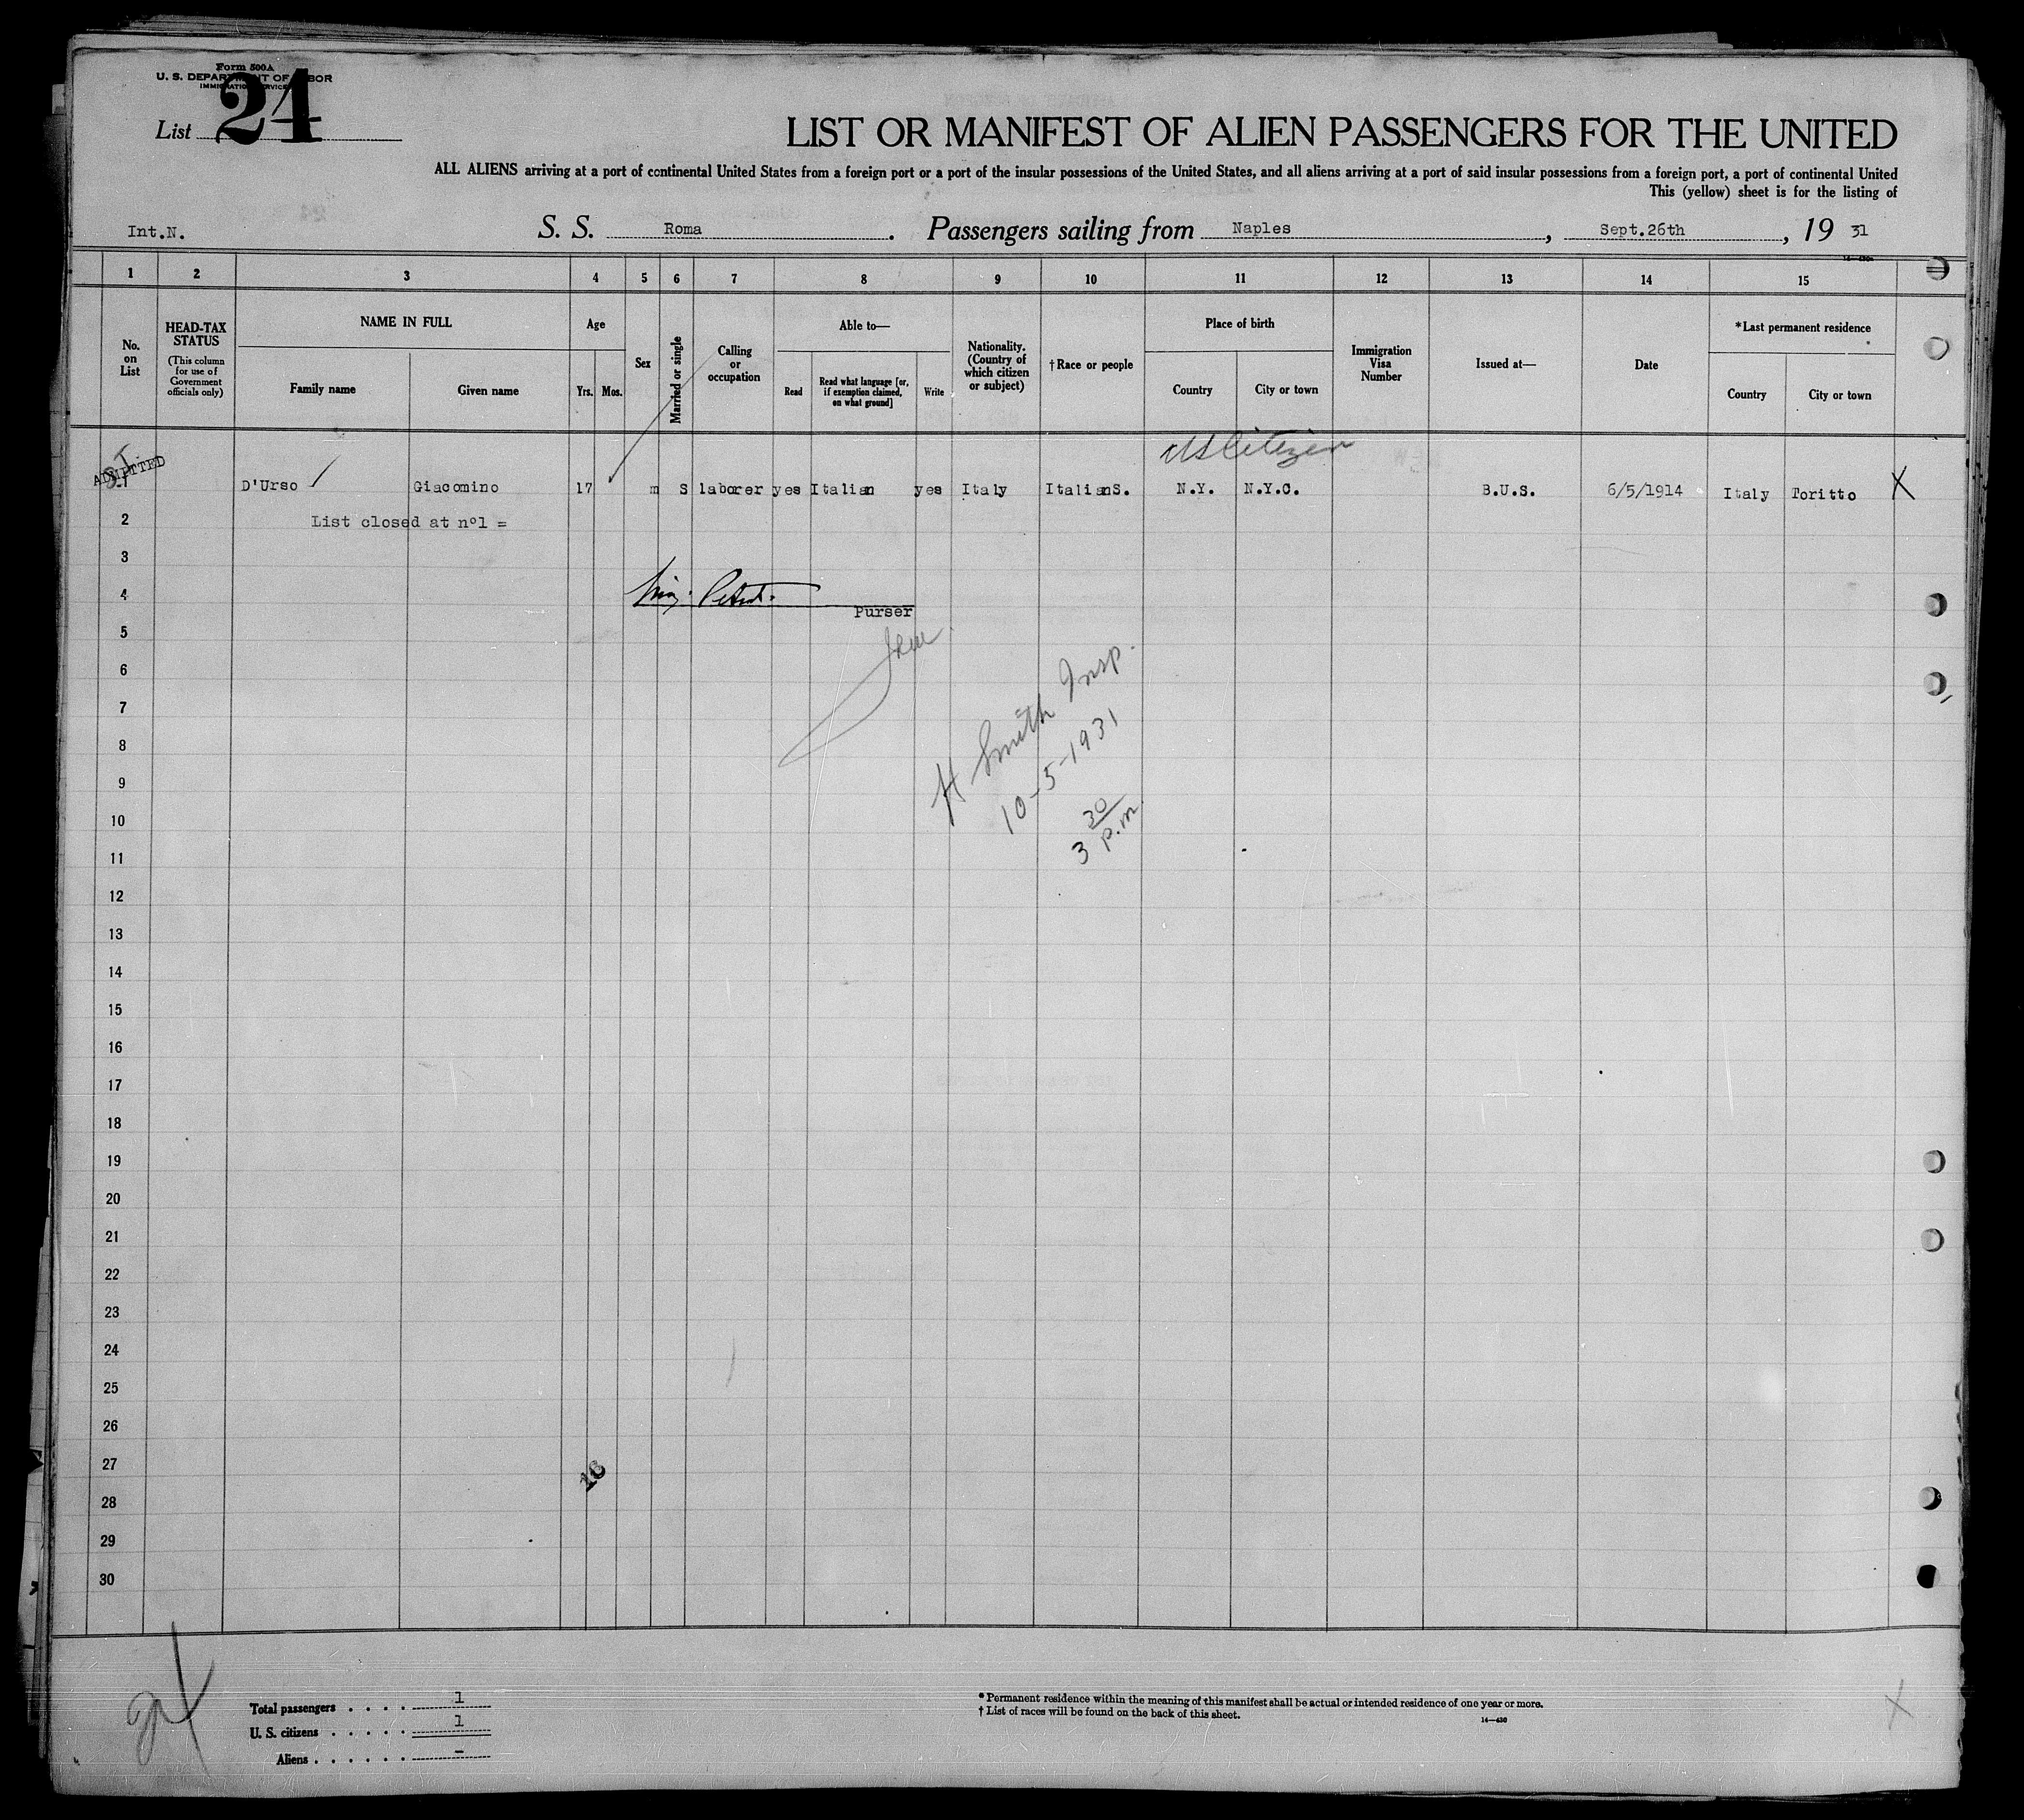 Form 500A
U. S. DEPARTMENT OF LABOR
IMMIGRATION SERVICE
List 24
LIST OR MANIFEST OF ALIEN PASSENGERS FOR THE UNITED
ALL ALIENS arriving at a port of continental United States from a foreign port or a port of the insular possessions of the United States, and all aliens arriving at a port of said insular possessions from a foreign port, a port of continental United
This (yellow) sheet is for the listing of
Int.N. S. S. Roma. Passengers sailing from Naples, Sept.26th, 19 31
1 2 3 4 5 6 7 8 9 10 11 12 13 14 15
No. on List
HEAD-TAX STATUS
(This column for use of Government officials only)
NAME IN FULL
Family name Given name
Age
Yrs. Mos.
Sex
Married or single
Calling or occupation
Able to—
Read
Read what language [or, if exemption claimed, on what ground]
Write
Nationality. (Country of which citizen or subject)
†Race or people
Place of birth
Country City or town
Immigration Visa Number
Issued at—
Date
*Last permanent residence
Country City or town
US Citizen
ADMITTED
1 D'Urso Giacomino 17 m S laborer yes Italian yes Italy ItalianS. N.Y. N.Y.C. B.U.S. 6/5/1914 Italy Toritto X
2 List closed at nº1 =
3
4
Purser
5
6
7
H Smith Insp.
10-5-1931
3 30 p.m.
8
9
10
11
12
13
14
15
16
17
18
19
20
21
22
23
24
25
26
27
16
28
29
30
Total passengers . . . . 1
U. S. citizens . . . . . 1
Aliens . . . . . . –
* Permanent residence within the meaning of this manifest shall be actual or intended residence of one year or more.
† List of races will be found on the back of this sheet.
14—430
X